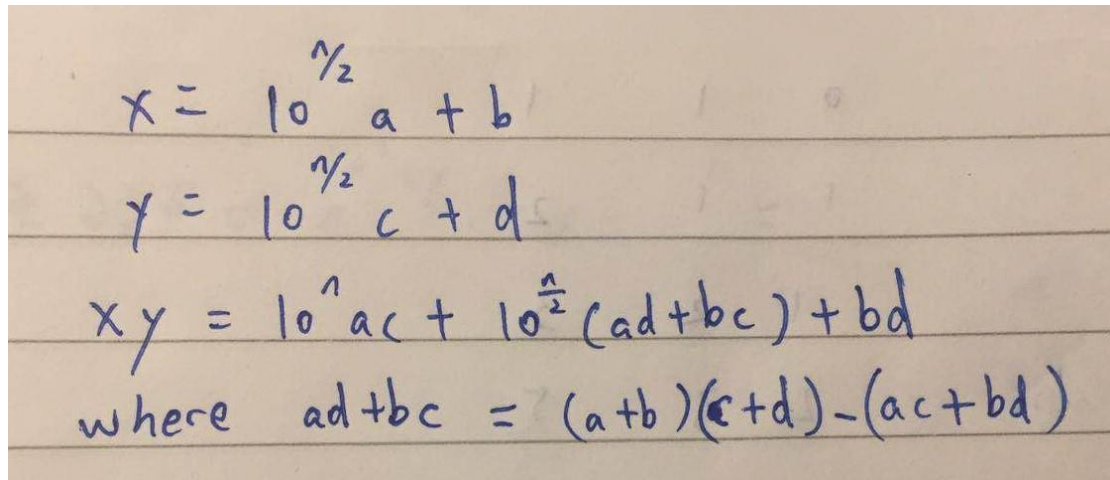 x = 10^(n/2) a + b
y = 10^(n/2) c + d
xy = 10^n ac + 10^(n/2) (ad+bc) + bd
where ad+bc = (a+b)(c+d)-(ac+bd)